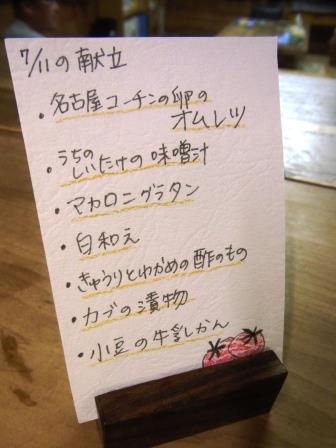 7/11の献立
・名古屋コーチンの卵の
オムレツ
・うちの
しいたけの味噌汁
・マカロニグラタン
・白和え
・きゅうりとわかめの酢のもの
・カブの漬物
・小豆の牛乳かん